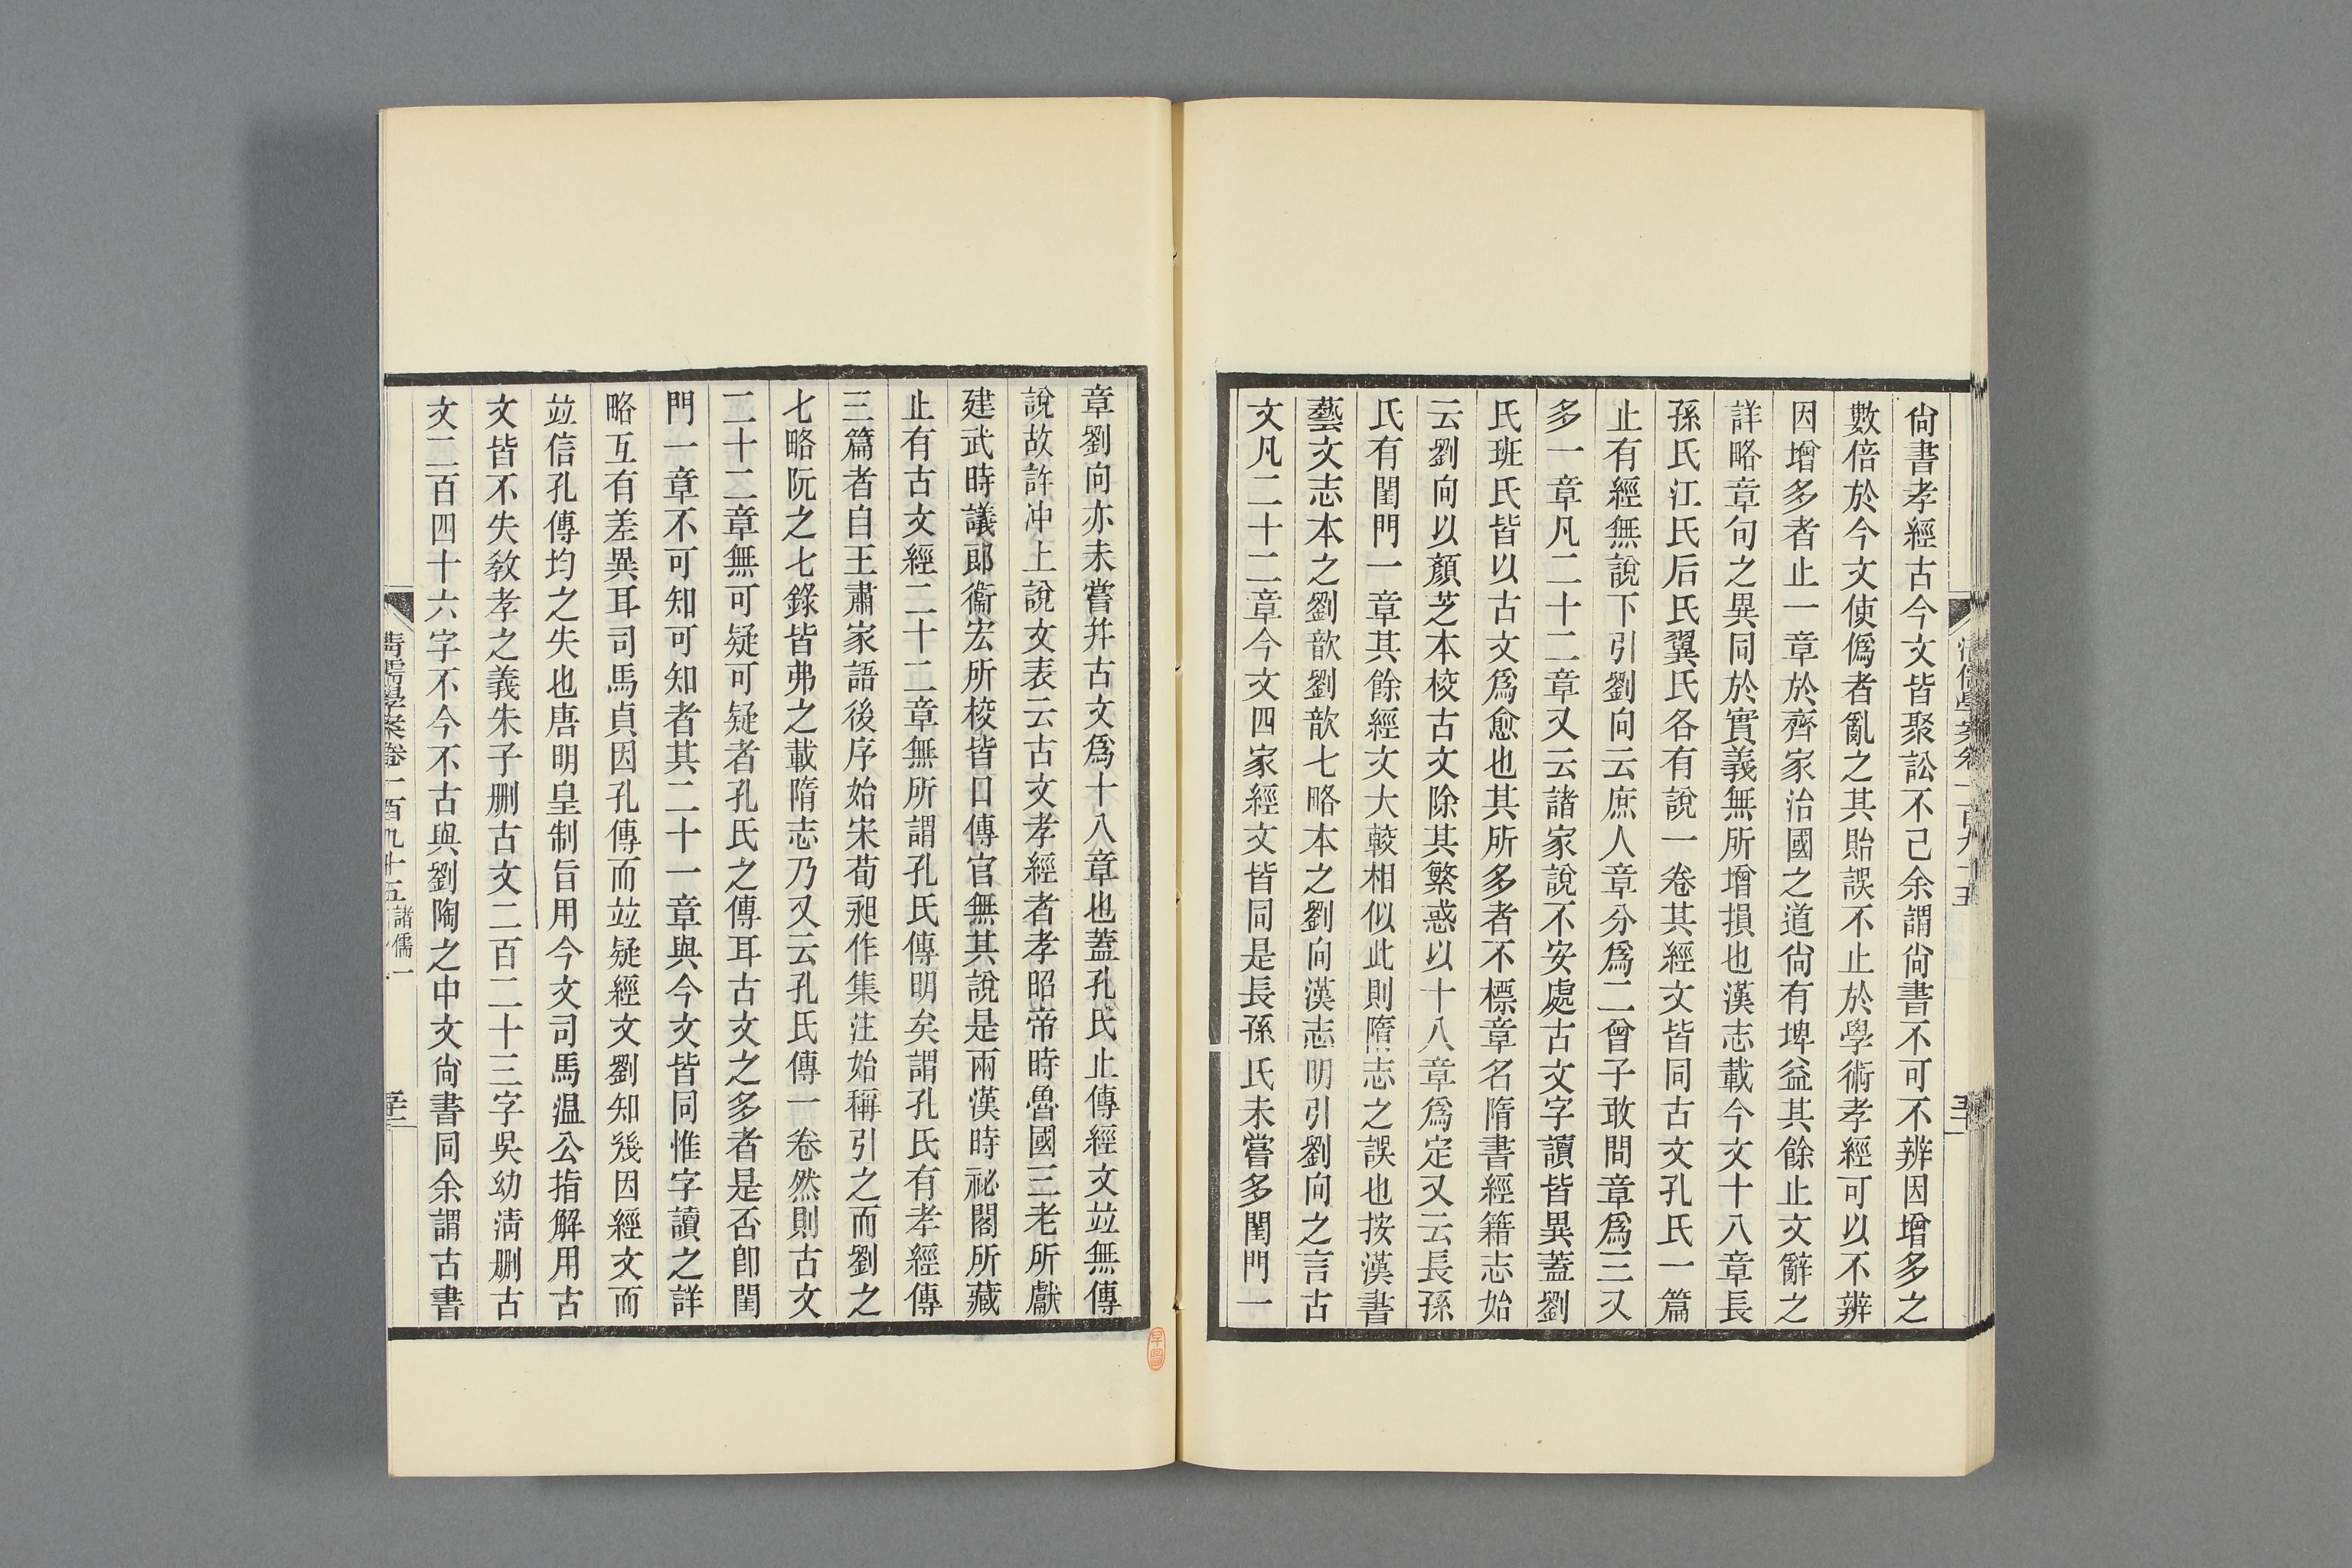 清儒學案卷一百九十五
尙書孝經古今文皆聚訟不已余謂尙書不可不辨因增多之
數倍於今文使僞者亂之其貽誤不止於學術孝經可以不辨
因增多者止一章於齊家治國之道尙有埤益其餘止文辭之
詳略章句之異同於實義無所增損也漢志載今文十八章長
孫氏江氏后氏翼氏各有說一卷其經文皆同古文孔氏一篇
止有經無說下引劉向云庶人章分爲二曾子敢問章爲三又
多一章凡二十二章又云諸家說不安處古文字讀皆異蓋劉
氏班氏皆以古文爲愈也其所多者不標章名隋書經籍志始
云劉向以顏芝本校古文除其繁惑以十八章爲定又云長孫
氏有閨門一章其餘經文大較相似此則隋志之誤也按漢書
藝文志本之劉歆劉歆七略本之劉向漢志明引劉向之言古
文凡二十二章今文四家經文皆同是長孫氏未嘗多閨門一
章劉向亦未嘗幷古文爲十八章也蓋孔氏止傳經文並無傳
說故許冲上說文表云古文孝經者孝昭帝時魯國三老所獻
建武時議郞衞宏所校皆口傳官無其說是兩漢時祕閣所藏
止有古文經二十二章無所謂孔氏傳明矣謂孔氏有孝經傳
三篇者自王肅家語後序始宋荀昶作集注始稱引之而劉之
七略阮之七錄皆弗之載隋志乃又云孔氏傳一卷然則古文
二十二章無可疑可疑者孔氏之傳耳古文之多者是否卽閨
門一章不可知可知者其二十一章與今文皆同惟字讀之詳
略互有差異耳司馬貞因孔傳而並疑經文劉知幾因經文而
並信孔傳均之失也唐明皇制旨用今文司馬温公指解用古
文皆不失敎孝之義朱子刪古文二百二十三字吳幼淸刪古
文二百四十六字不今不古與劉陶之中文尙書同余謂古書
清儒學案卷一百九十五 諸儒一